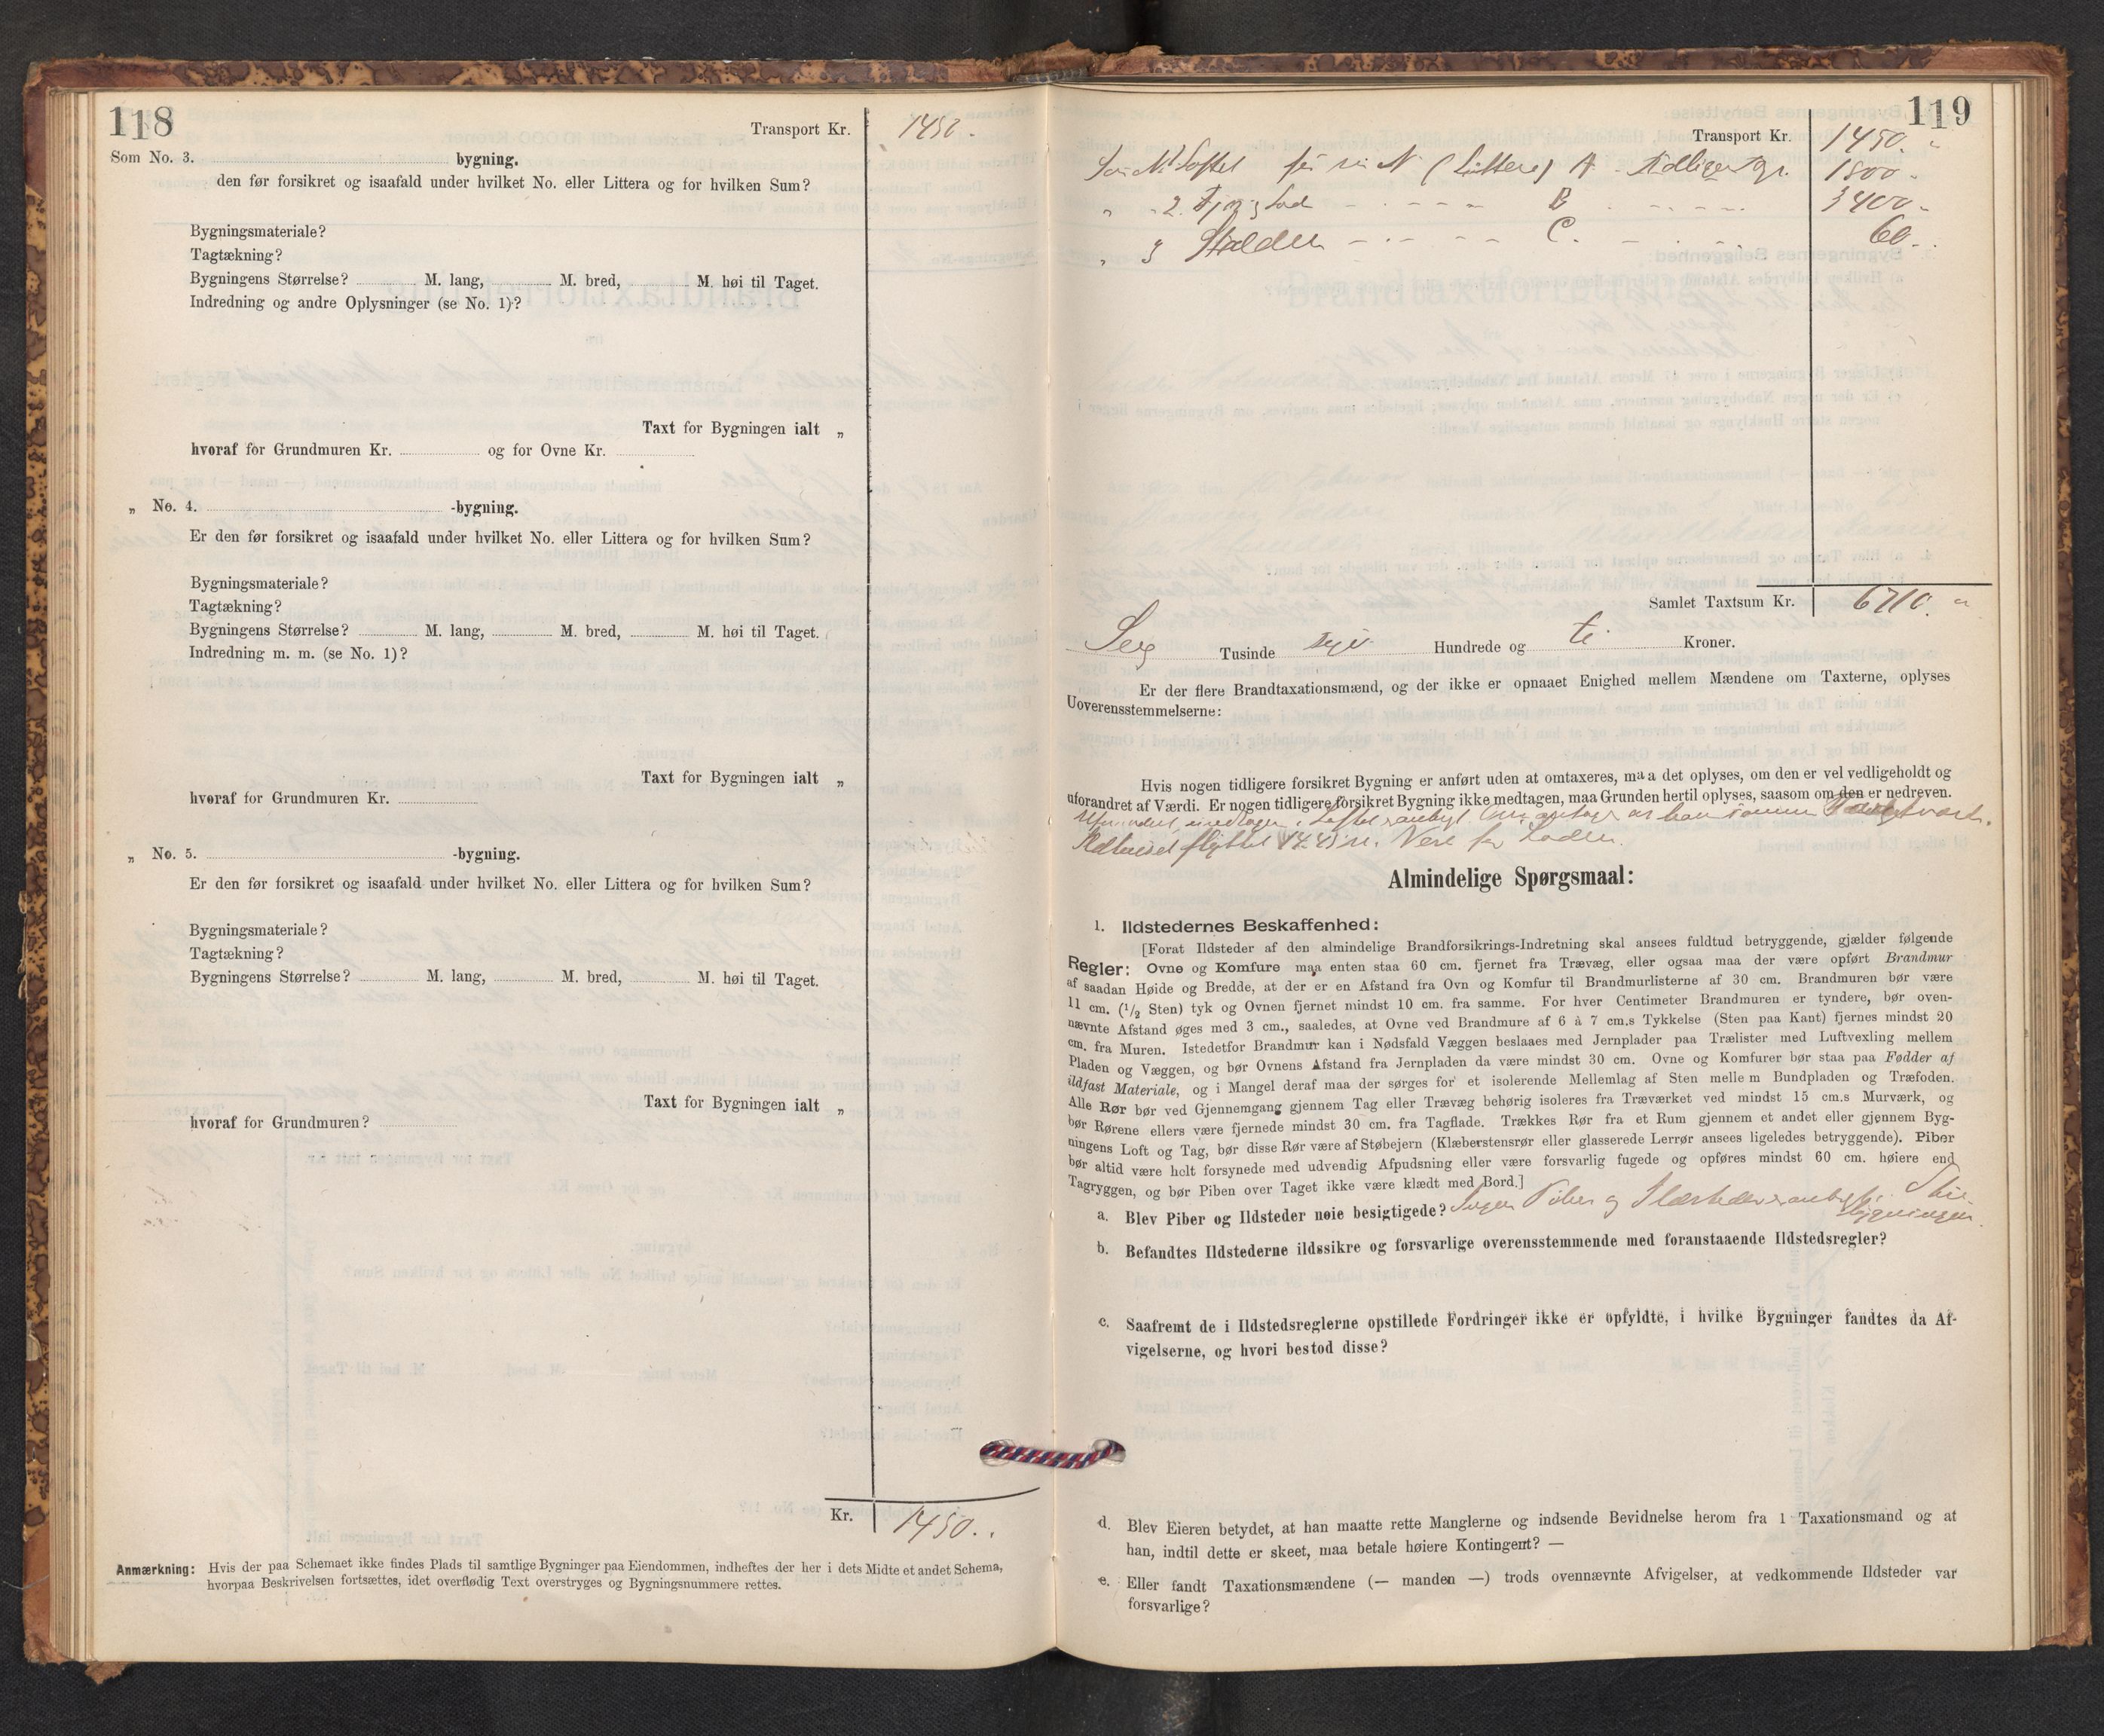 118
Transport Kr. 1450.
Som No. 3. bygning.
den før forsikret og isaafald under hvilket No. eller Littera og for hvilken Sum?
Bygningsmateriale?
Tagtækning?
Bygningens Størrelse? M. lang, M. bred, M. høi til Taget.
Indredning og andre Oplysninger (se No. 1)?
Taxt for Bygningen ialt „
hvoraf for Grundmuren Kr. og for Ovne Kr.
„ No. 4. -bygning.
Er den før forsikret og isaafald under hvilket No. eller Littera og for hvilken Sum?
Bygningsmateriale?
Tagtækning?
Bygningens Størrelse? M. lang, M. bred, M. høi til Taget.
Indredning m. m. (se No. 1)?
Taxt for Bygningen ialt „
hvoraf for Grundmuren Kr.
„ No. 5. -bygning.
Er den før forsikret og isaafald under hvilket No. eller Littera og for hvilken Sum?
Bygningsmateriale?
Tagtækning?
Bygningens Størrelse? M. lang, M. bred, M. høi til Taget.
Taxt for Bygningen ialt „
hvoraf for Grundmuren?
Kr. 1450..
Anmærkning: Hvis der paa Schemaet ikke findes Plads til samtlige Bygninger paa Eiendommen, indheftes der her i dets Midte et andet Schema,
hvorpaa Beskrivelsen fortsættes, idet overflødig Text overstryges og Bygningsnummere rettes.
119
Transport Kr. 1450.
Loftet før (Littera) A 1800.
" 2. B 3400.
" 3 Stalden C. 60.
Samlet Taxtsum Kr. 6710.
Sex Tusinde syv Hundrede og ti Kroner.
Er der flere Brandtaxationsmænd, og der ikke er opnaaet Enighed mellem Mændene om Taxterne, oplyses
Uoverensstemmelserne:
Hvis nogen tidligere forsikret Bygning er anført uden at omtaxeres, maa det oplyses, om den er vel vedligeholdt og
uforandret af Værdi. Er nogen tidligere forsikret Bygning ikke medtagen, maa Grunden hertil oplyses, saasom om den er nedreven.
Ildhuset flyttet
Almindelige Spørgsmaal:
1. Ildstedernes Beskaffenhed:
[Forat Ildsteder af den almindelige Brandforsikrings-Indretning skal ansees fuldtud betryggende, gjælder følgende
Regler: Ovne og Komfure maa enten staa 60 cm. fjernet fra Trævæg, eller ogsaa maa der være opført Brandmur
af saadan Høide og Bredde, at der er en Afstand fra Ovn og Komfur til Brandmurlisterne af 30 cm. Brandmuren bør være
11 cm. (1/2 Sten) tyk og Ovnen fjernet mindst 10 cm. fra samme. For hver Centimeter Brandmuren er tyndere, bør oven-
nævnte Afstand øges med 3 cm., saaledes, at Ovne ved Brandmure af 6 à 7 cm.s Tykkelse (Sten paa Kant) fjernes mindst 20
cm. fra Muren. Istedetfor Brandmur kan i Nødsfald Væggen beslaaes med Jernplader paa Trælister med Luftvexling mellem
Pladen og Væggen, og bør Ovnens Afstand fra Jernpladen da være mindst 30 cm. Ovne og Komfurer bør staa paa Fødder af
ildfast Materiale, og i Mangel deraf maa der sørges for et isolerende Mellemlag af Sten mellem Bundpladen og Træfoden.
Alle Rør bør ved Gjennemgang gjennem Tag eller Trævæg behørig isoleres fra Træværket ved mindst 15 cm.s Murværk, og
bør Rørene ellers være fjernede mindst 30 cm. fra Tagflade. Trækkes Rør fra et Rum gjennem et andet eller gjennem Byg-
ningens Loft og Tag, bør disse Rør være af Støbejern (Klæberstensrør eller glasserede Lerrør ansees ligeledes betryggende). Piber
bør altid være holt forsynede med udvendig Afpudsning eller være forsvarlig fugede og opføres mindst 60 cm. høiere end
Tagryggen, og bør Piben over Taget ikke være klædt med Bord.]
a. Blev Piber og Ildsteder nøie besigtigede? Ingen Piber og
b. Befandtes Ildstederne ildssikre og forsvarlige overensstemmende med foranstaaende Ildstedsregler?
c. Saafremt de i Ildstedsreglerne opstillede Fordringer ikke er opfyldte, i hvilke Bygninger fandtes da Af-
vigelserne, og hvori bestod disse?
d. Blev Eieren betydet, at han maatte rette Manglerne og indsende Bevidnelse herom fra 1 Taxationsmand og at
han, indtil dette er skeet, maa betale høiere Kontingent? —
e. Eller fandt Taxationsmændene (— manden —) trods ovennævnte Afvigelser, at vedkommende Ildsteder var
forsvarlige?